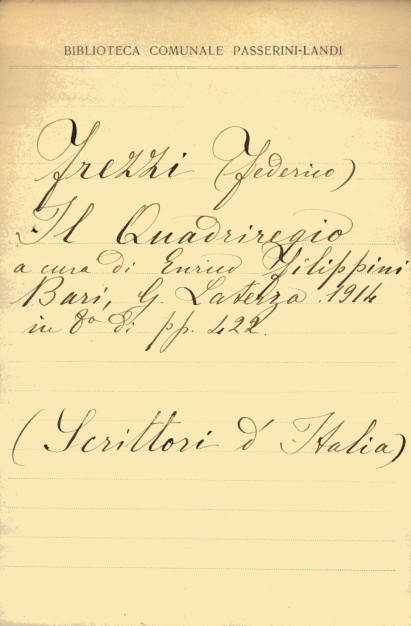 BIBLIOTECA COMUNALE PASSERINI-LANDI
Frezzi (Federico)
Il Quadriregio
a cura di Enrico Filippini
Bari, G. Laterza. 1914
in 8º di pp. 422.
(Scrittori d'Italia)